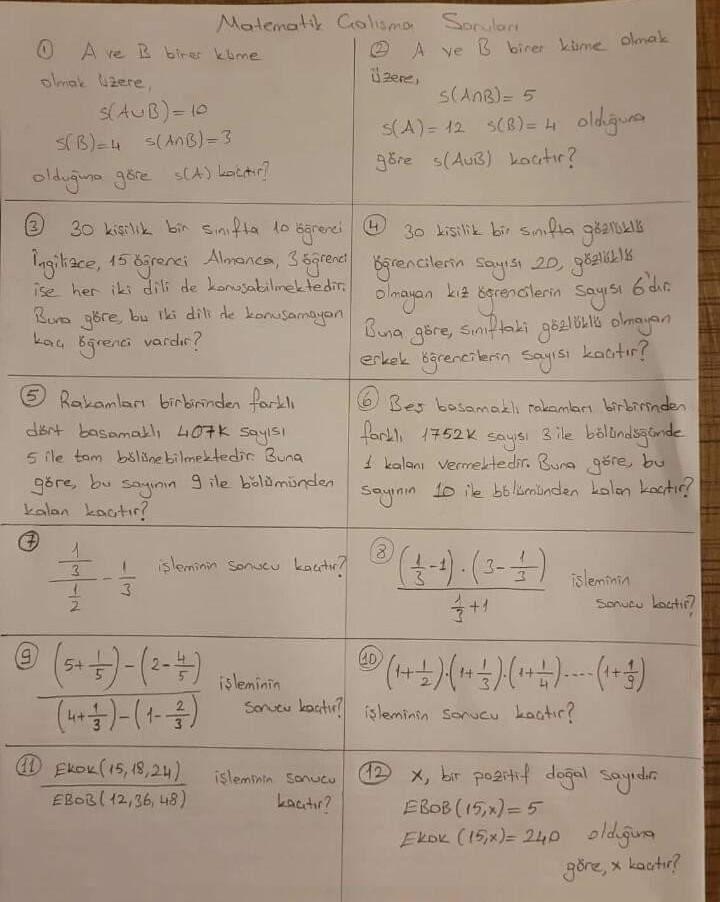 Matematik Çalışma Soruları
① A ve B birer küme
olmak üzere,
s(A∪B)=10
s(B)=4 s(A∩B)=3
olduğuna göre s(A) kaçtır?
② A ve B birer küme olmak
üzere,
s(A∩B)=5
s(A)=12 s(B)=4 olduğuna
göre s(A∪B) kaçtır?
③ 30 kişilik bir sınıfta 10 öğrenci
İngilizce, 15 öğrenci Almanca, 3 öğrenci
ise her iki dili de konuşabilmektedir.
Buna göre, bu iki dili de konuşamayan
kaç öğrenci vardır?
④ 30 kişilik bir sınıfta gözlüklü
öğrencilerin sayısı 20, gözlüklü
olmayan kız öğrencilerin sayısı 6'dır.
Buna göre, sınıftaki gözlüklü olmayan
erkek öğrencilerin sayısı kaçtır?
⑤ Rakamları birbirinden farklı
dört basamaklı 407K sayısı
5 ile tam bölünebilmektedir. Buna
göre, bu sayının 9 ile bölümünden
kalan kaçtır?
⑥ Beş basamaklı rakamları birbirinden
farklı 1752K sayısı 3 ile bölündüğünde
1 kalanı vermektedir. Buna göre, bu
sayının 10 ile bölümünden kalan kaçtır?
⑦ (1/3)/(1/2) - 1/3 işleminin sonucu kaçtır?
⑧ ((1/3-1).(3-1/3))/(1/3+1) işleminin
sonucu kaçtır?
⑨ ((5+1/5)-(2-4/5))/((4+1/3)-(1-2/3)) işleminin
sonucu kaçtır?
⑩ (1+1/2).(1+1/3).(1+1/4)....(1+1/9)
işleminin sonucu kaçtır?
⑪ EKOK(15,18,24)/EBOB(12,36,48) işleminin sonucu
kaçtır?
⑫ x, bir pozitif doğal sayıdır.
EBOB(15,x)=5
EKOK(15,x)=240 olduğuna
göre, x kaçtır?